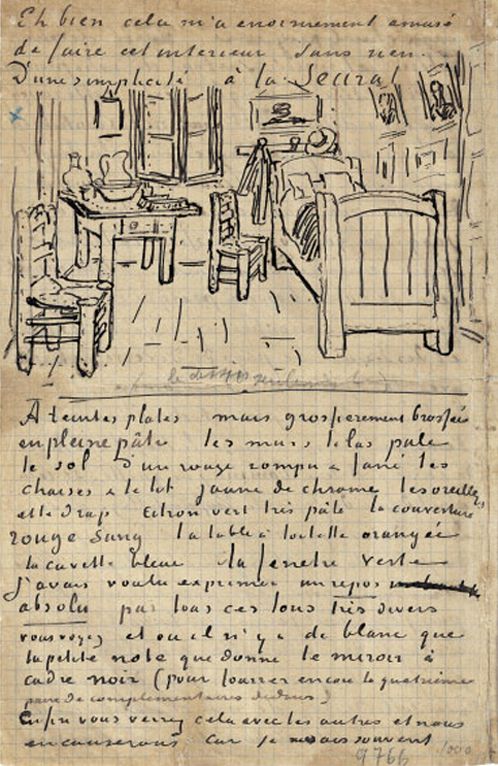 Eh bien cela m'a enormement amusé
de faire cet interieur sans rien.
D'une simplicité à la Seurat
A teintes plates mais grossierement brossées
en pleine pâte les murs lilas pale
le sol d'un rouge rompu & fané les
chaises & le lit jaune de chrome les oreillers
et le drap citron vert très pâle la couverture
rouge sang la table à toilette orangée
la cuvette bleue la fenetre verte
J'avais voulu exprimer un repos
absolu par tous ces tons très divers
vous voyez et ou il n'y a de blanc que
la petite note que donne le miroir à
cadre noir (pour fourrer encore la quatrième
paire de complementaires dedans)
Enfin vous verrez cela avec les autres et nous
en causerons car je ne sais souvent
9766 1000